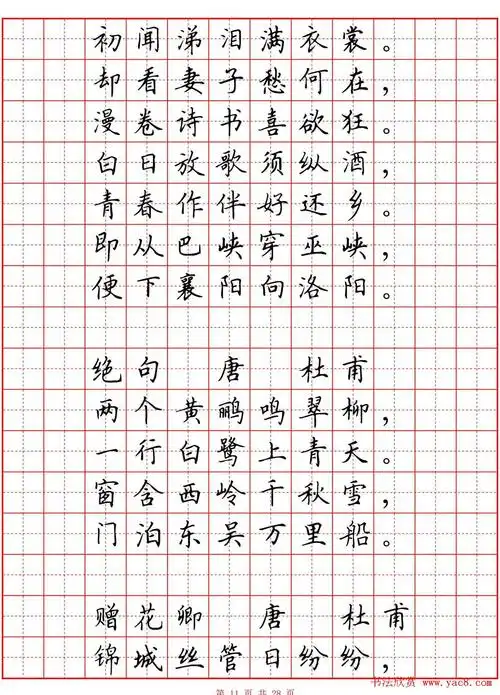 初闻涕泪满衣裳。
却看妻子愁何在,
漫卷诗书喜欲狂。
白日放歌须纵酒,
青春作伴好还乡。
即从巴峡穿巫峡,
便下襄阳向洛阳。
绝句 唐 杜甫
两个黄鹂鸣翠柳,
一行白鹭上青天。
窗含西岭千秋雪,
门泊东吴万里船。
赠花卿 唐 杜甫
锦城丝管日纷纷,
第 11 页 共 28 页
书法欣赏
www.yac8.com